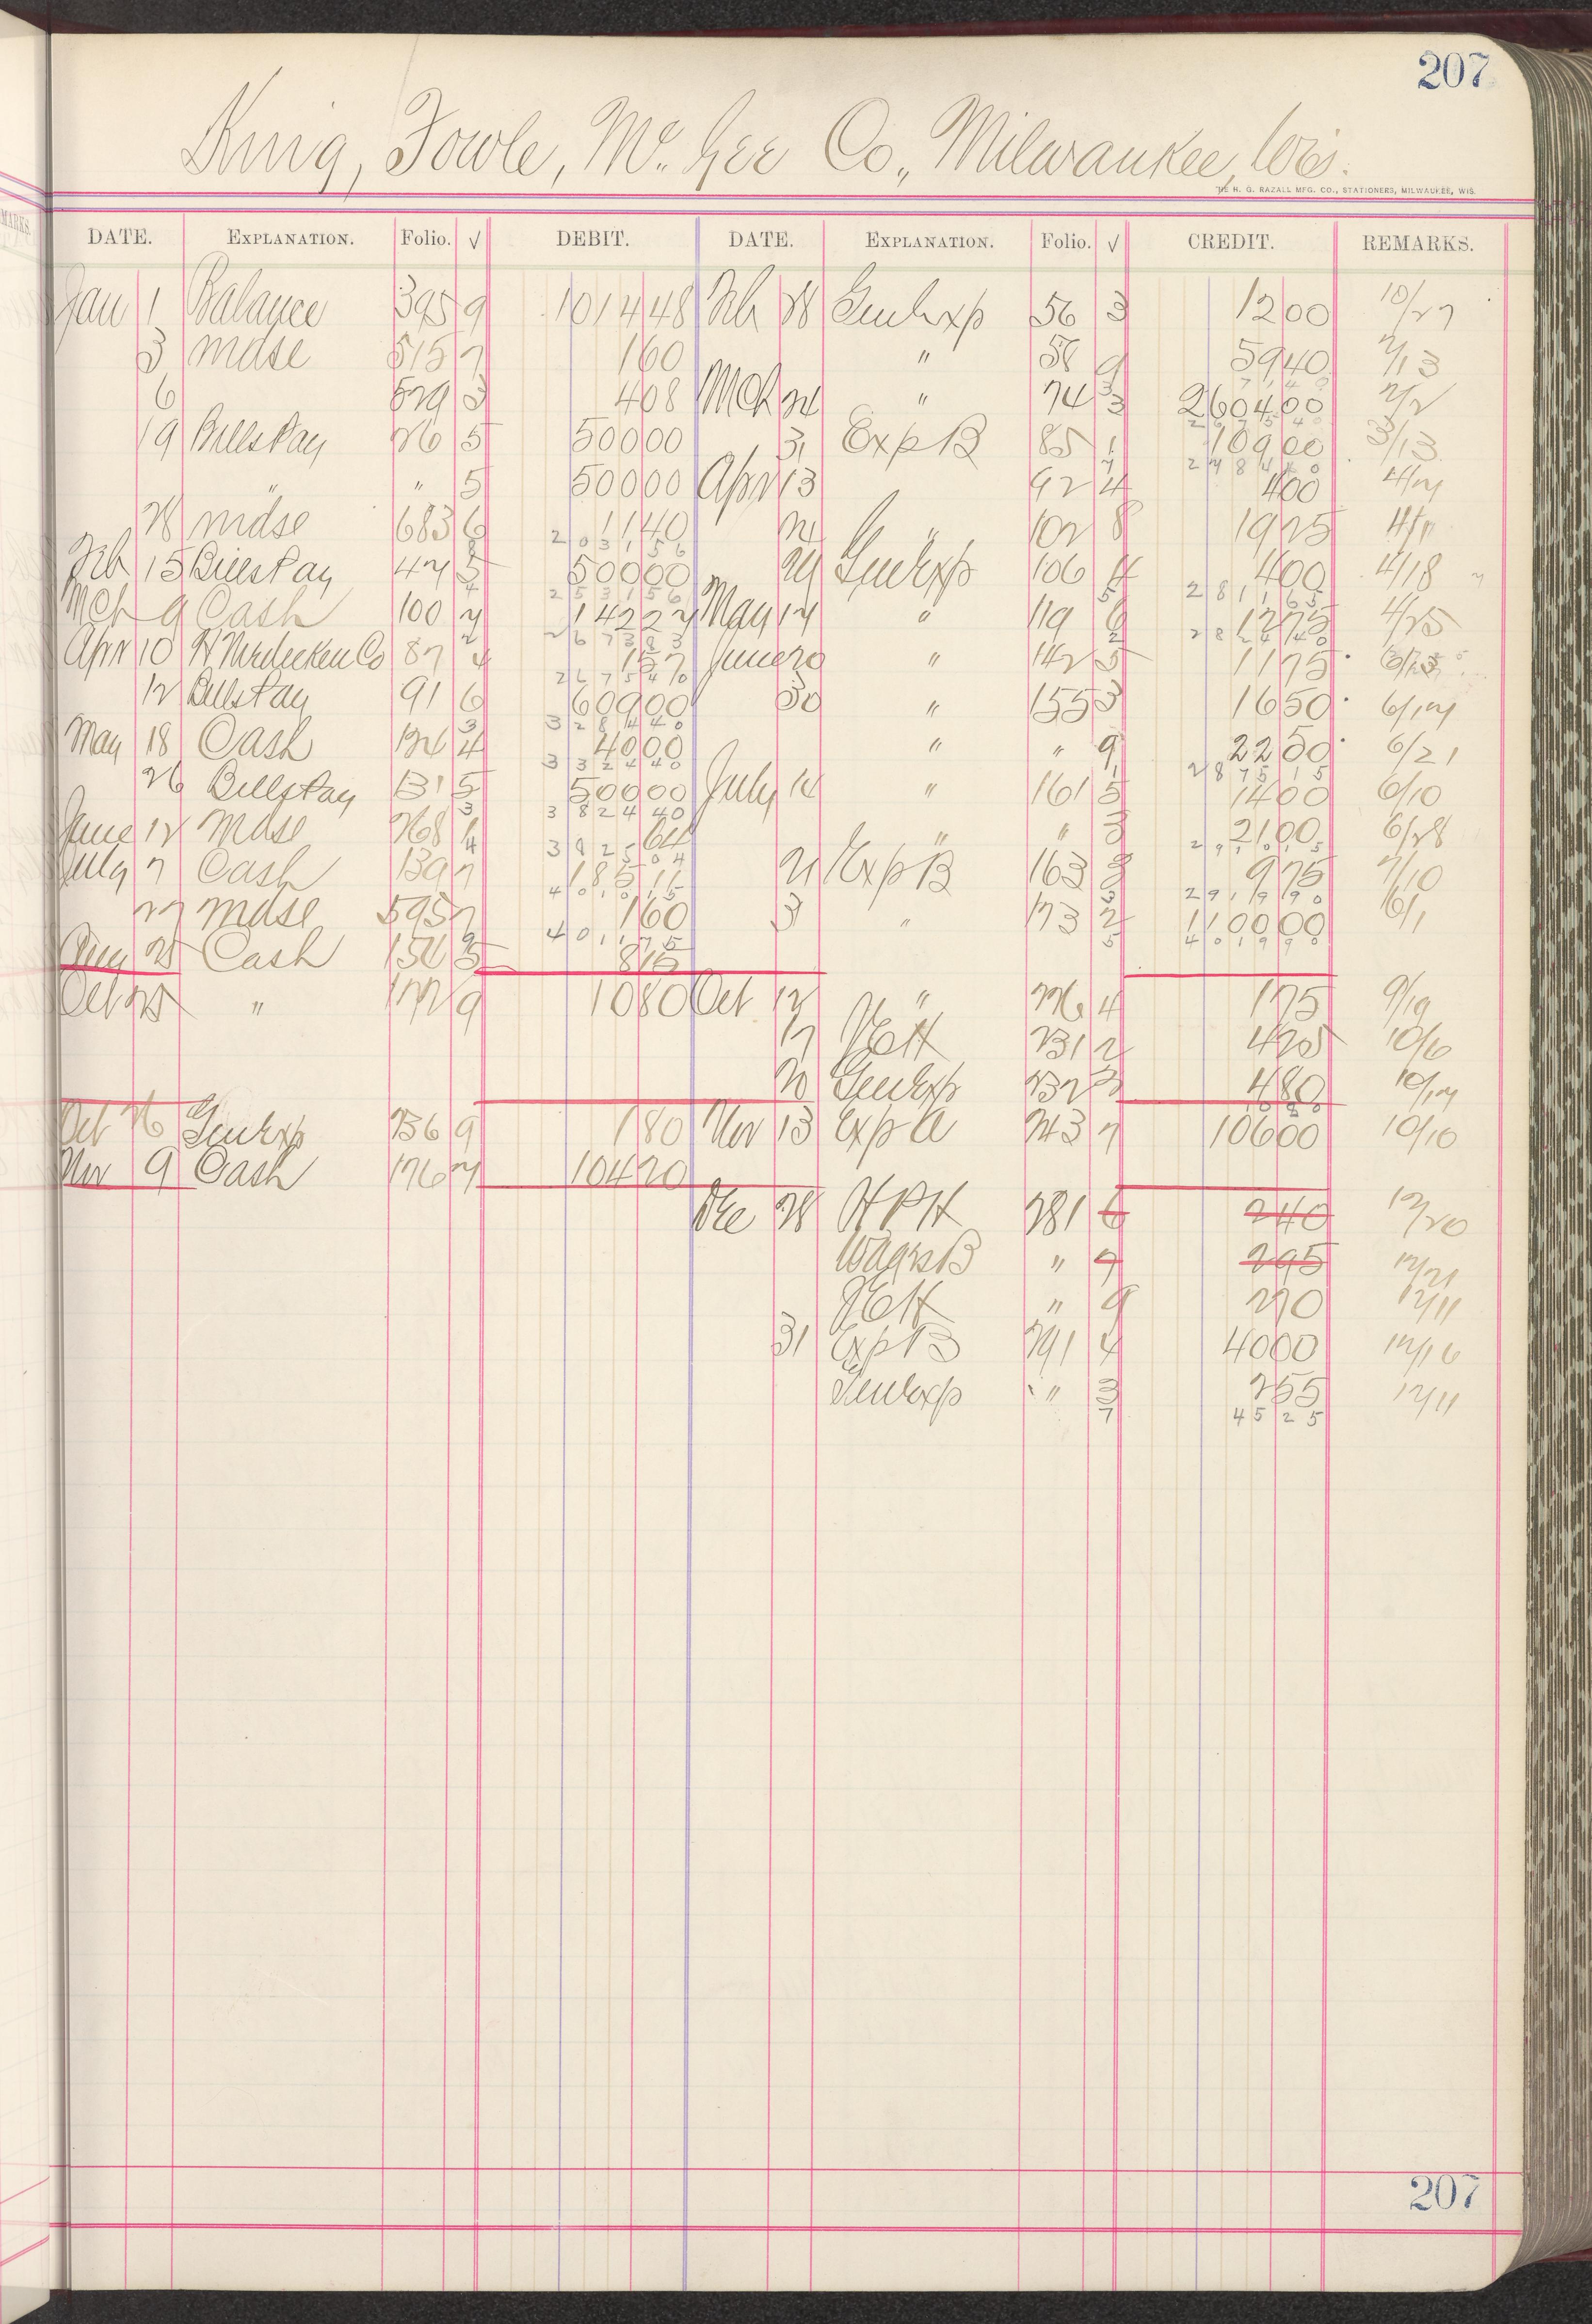 207
King, Fowle, McGee Co., Milwaukee, Wis.
THE H. G. RAZALL MFG. CO., STATIONERS, MILWAUKEE, WIS.
DATE. EXPLANATION. Folio. √ DEBIT. DATE. EXPLANATION. Folio. √ CREDIT. REMARKS.
Jan 1 Balance 395 9 101448 Feb 28 GenExp 56 3 1200 10/27
3 Mdse 515 7 160 " 58 9 5940 2/13
7140
6 529 3 408 Mch 24 " 74 3 260400 2/2
267540
19 Bills Pay 26 5 50000 31 Exp B 85 1 10900 3/13
278440
" " 5 50000 Apr 13 92 4 400 4/4
28 Mdse 683 6 1140 24 " 102 8 1925 4/11
203156
Feb 15 Bills Pay 47 5 50000 29 GenExp 106 4 400 4/18
253156 281165
Mch 9 Cash 100 4 14227 May 14 " 119 6 1275 4/25
267383 282440
Apr 10 87 4 157 June 20 " 142 5 1175
267540
12 Bills Pay 91 6 60900 30 " 155 3 1650 6/14
328440
May 18 Cash 124 4 4000 " " 9 2250 6/21
332440 287515
26 Bills Pay 131 5 50000 July 14 " 161 5 1400 6/10
382440
June 12 Mdse 268 4 64 " " 3 2100 6/28
382504 291015
July 7 Cash 139 7 18511 21 Exp B 163 8 975 7/10
401015 291990
27 Mdse 595 7 160 31 " 173 2 110000 6/1
401175 401990
Aug 25 Cash 156 5 815
Oct 25 " 172 9 1080 Oct 12 " 226 4 175 9/19
17 231 2 425 10/6
20 GenExp 232 3 480 10/14
1080
Oct 26 GenExp 236 9 180 Nov 13 Exp A 243 7 10600 10/10
Nov 9 Cash 176 4 10420
Dec 28 HPH 281 6 240 12/20
Wages B " 7 295 12/21
" 9 270 12/11
31 Exp B 291 4 4000 12/16
GenExp " 3 255 12/11
7 4525
207